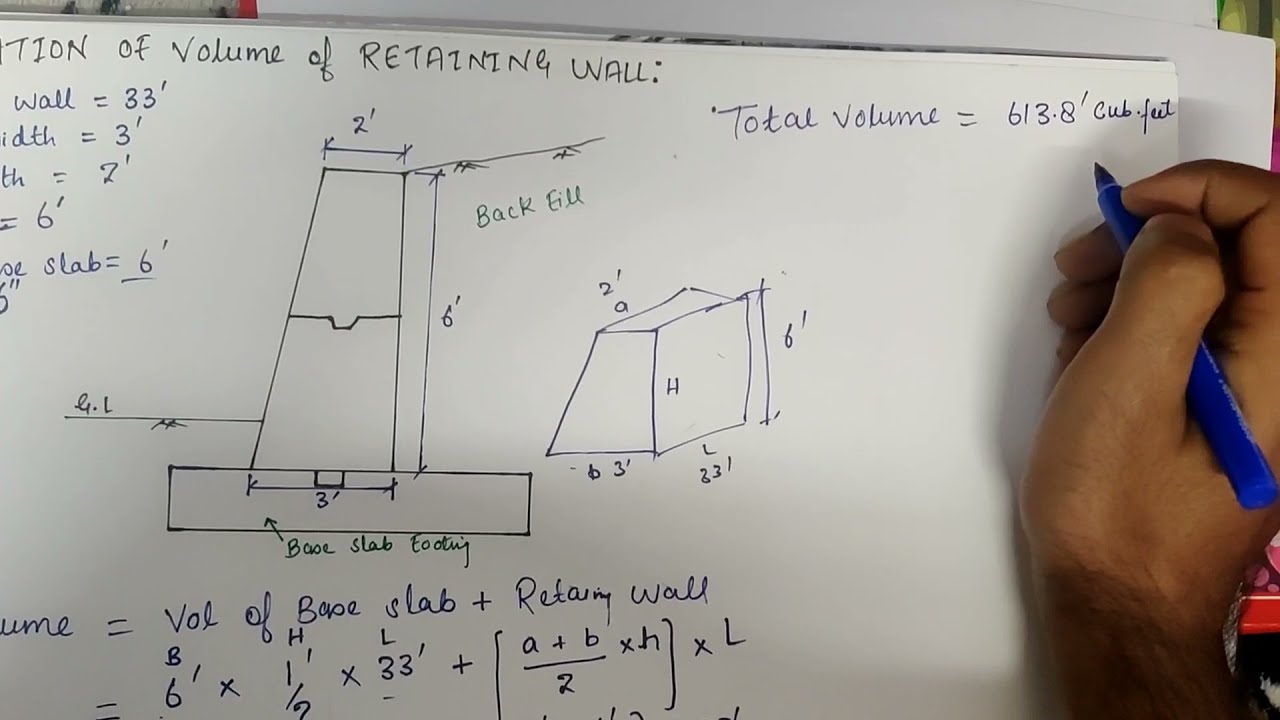 ATION OF Volume of RETAINING WALL:
wall = 33'
idth = 3'
th = 2'
= 6'
se slab = 6'
6"
Total volume = 613.8' Cub.feet
2'
Back Fill
6'
G.L
3'
Base slab Footing
2'
a
H
6'
b 3'
L
33'
ume = Vol of Base slab + Retaing wall
B H L
= 6' x 1'/2 x 33' + [a + b/2 x h] x L